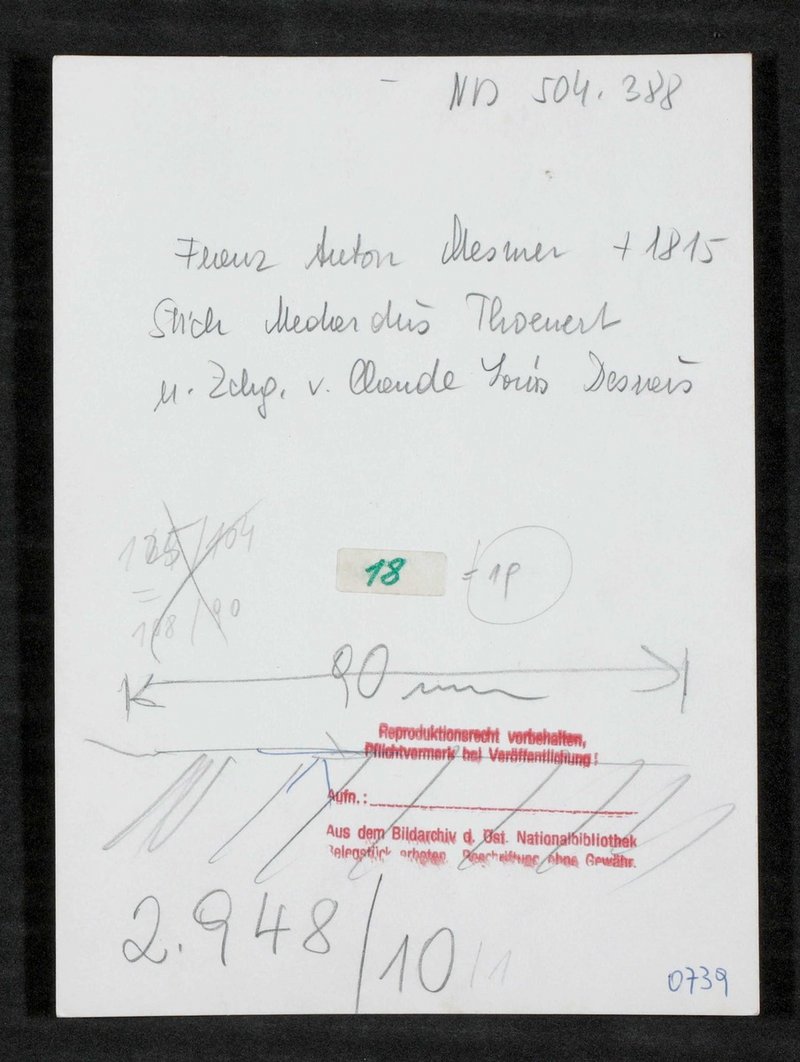 NB 504.388
Franz Anton Mesmer + 1815
Stich Medardus Thoenert
n. Zchg. v. Claude Louis Desrais
125/104
=
108/90
18
= 1P
90 mm
Reproduktionsrecht vorbehalten,
Pflichtvermerk bei Veröffentlichung!
Aufn.:
Aus dem Bildarchiv d. Öst. Nationalbibliothek
Belegstück erbeten. Beschriftung ohne Gewähr.
2.948/10/1
0739